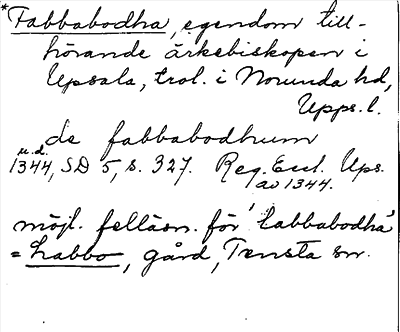 *Fabbabodha, egendom till-
hörande ärkebiskopen i
Upsala, trol. i Norunda hd,
Upps. l.
de fabbabodhum
u.d.
1344, SD 5, s. 327. Reg. Eccl. Ups.
av 1344.
möjl. felläsn. för 'Labbabodha'
= Labbo, gård, Tensta sn.